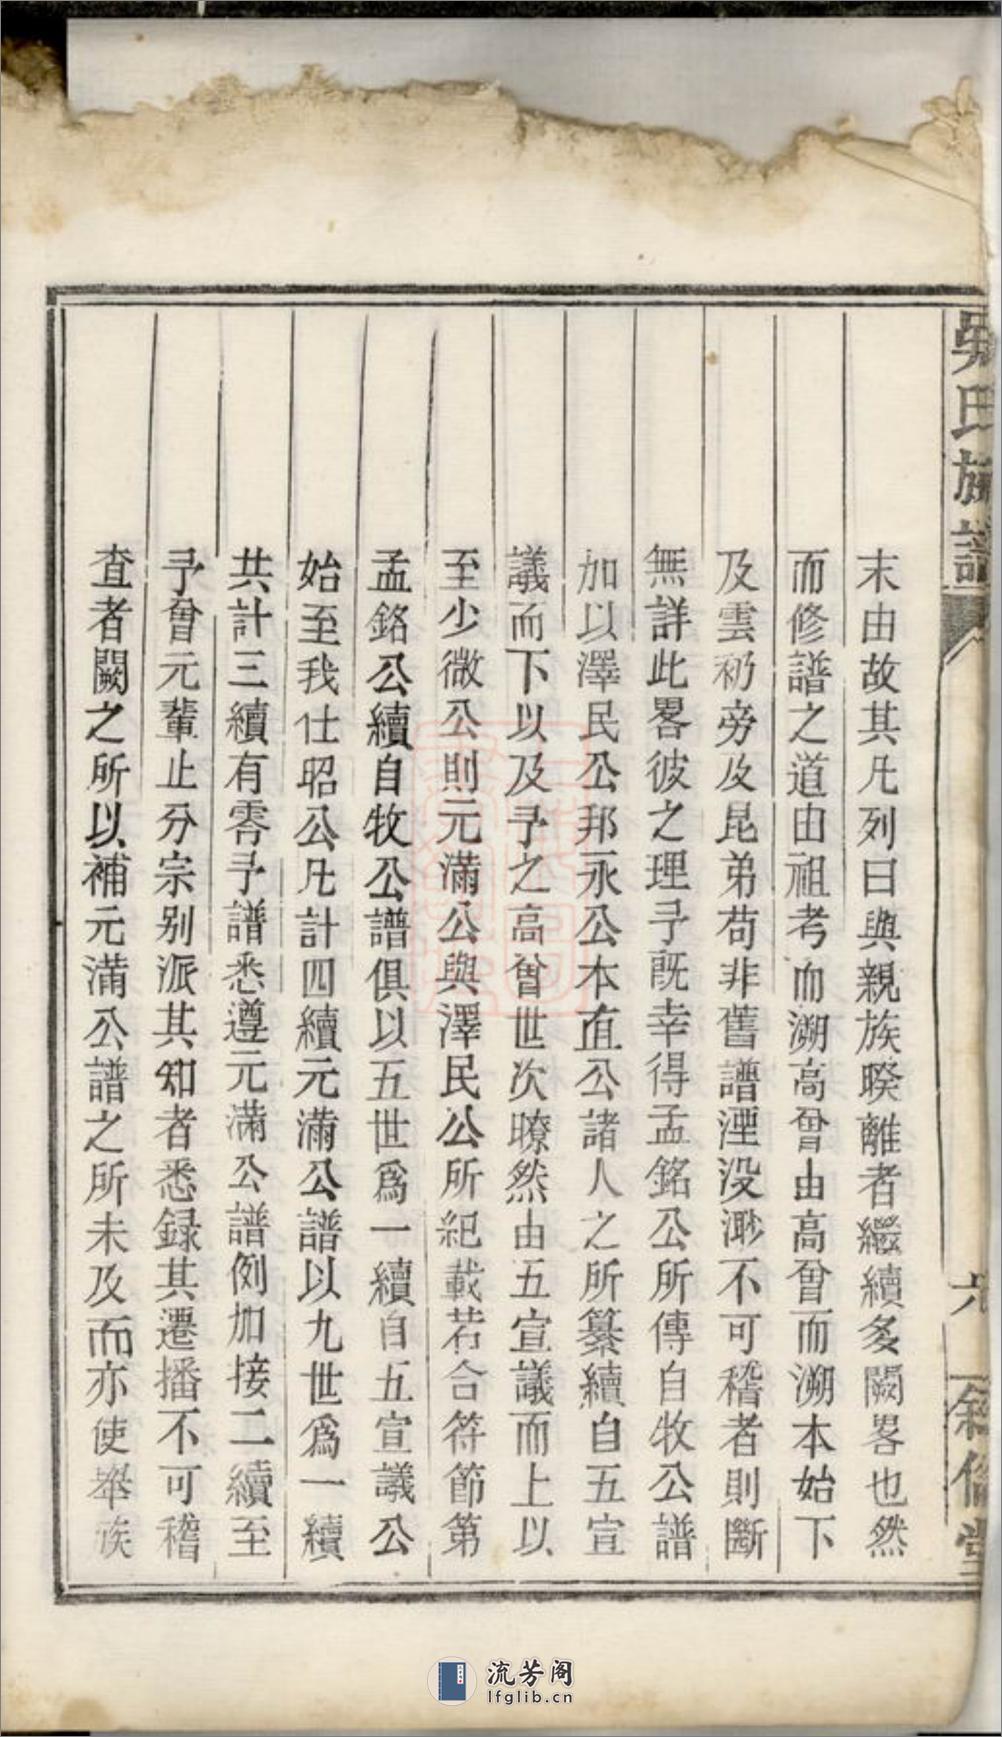 吳氏族譜
六
敘倫堂
末由故其凡列曰與親族暌離者繼續多闕畧也然
而修譜之道由祖考而溯高曾由高曾而溯本始下
及雲礽旁及昆弟苟非舊譜湮没渺不可稽者則斷
無詳此畧彼之理予既幸得孟銘公所傳自牧公譜
加以澤民公邦永公本直公諸人之所纂續自五宣
議而下以及予之高曾世次暸然由五宣議而上以
至少微公則元滿公與澤民公所紀載若合符節第
孟銘公續自牧公譜俱以五世爲一續自五宣議公
始至我仕昭公凡計四續元滿公譜以九世爲一續
共計三續有零予譜悉遵元滿公譜例加接二續至
予曾元輩止分宗别派其知者悉録其遷播不可稽
查者闕之所以補元滿公譜之所未及而亦使舉族
流芳阁
lfglib.cn